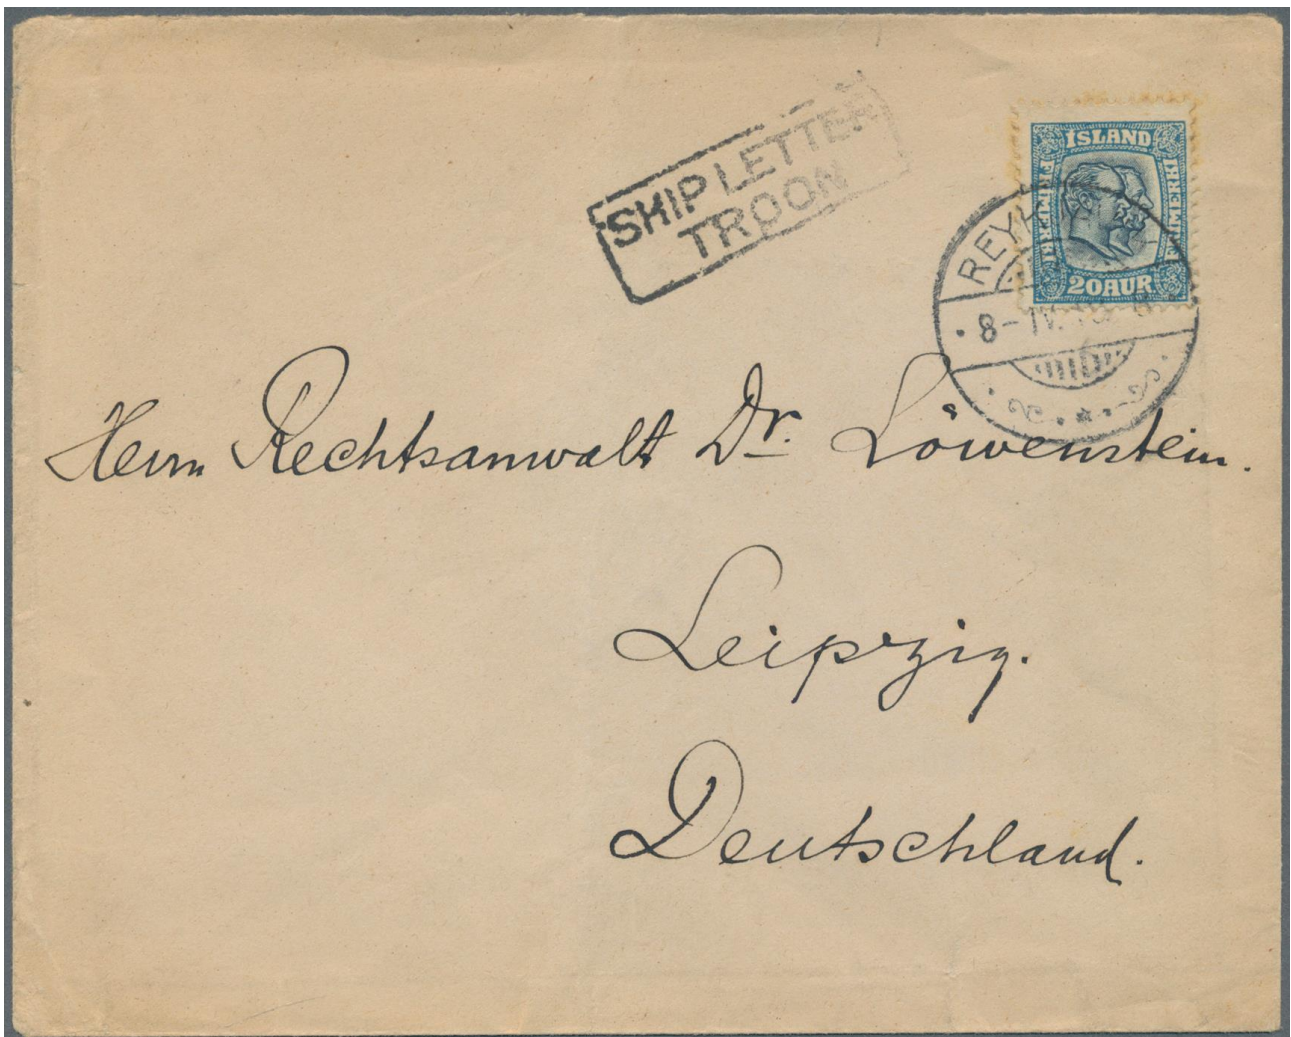 SHIP LETTER
TROON
ÍSLAND
FRÍMERKI
FRÍMERKI
20 AUR
8-IV.
Herrn Rechtsanwalt Dr. Löwenstein.
Leipzig.
Deutschland.